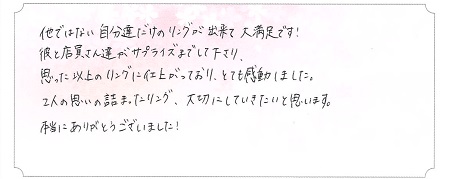 他ではない自分達だけのリングが出来て大満足です!
彼と店員さん達がサプライズまでして下さり、
思った以上のリングに仕上がっており、とても感動しました。
2人の思いの詰まったリング、大切にしていきたいと思います。
本当にありがとうございました!